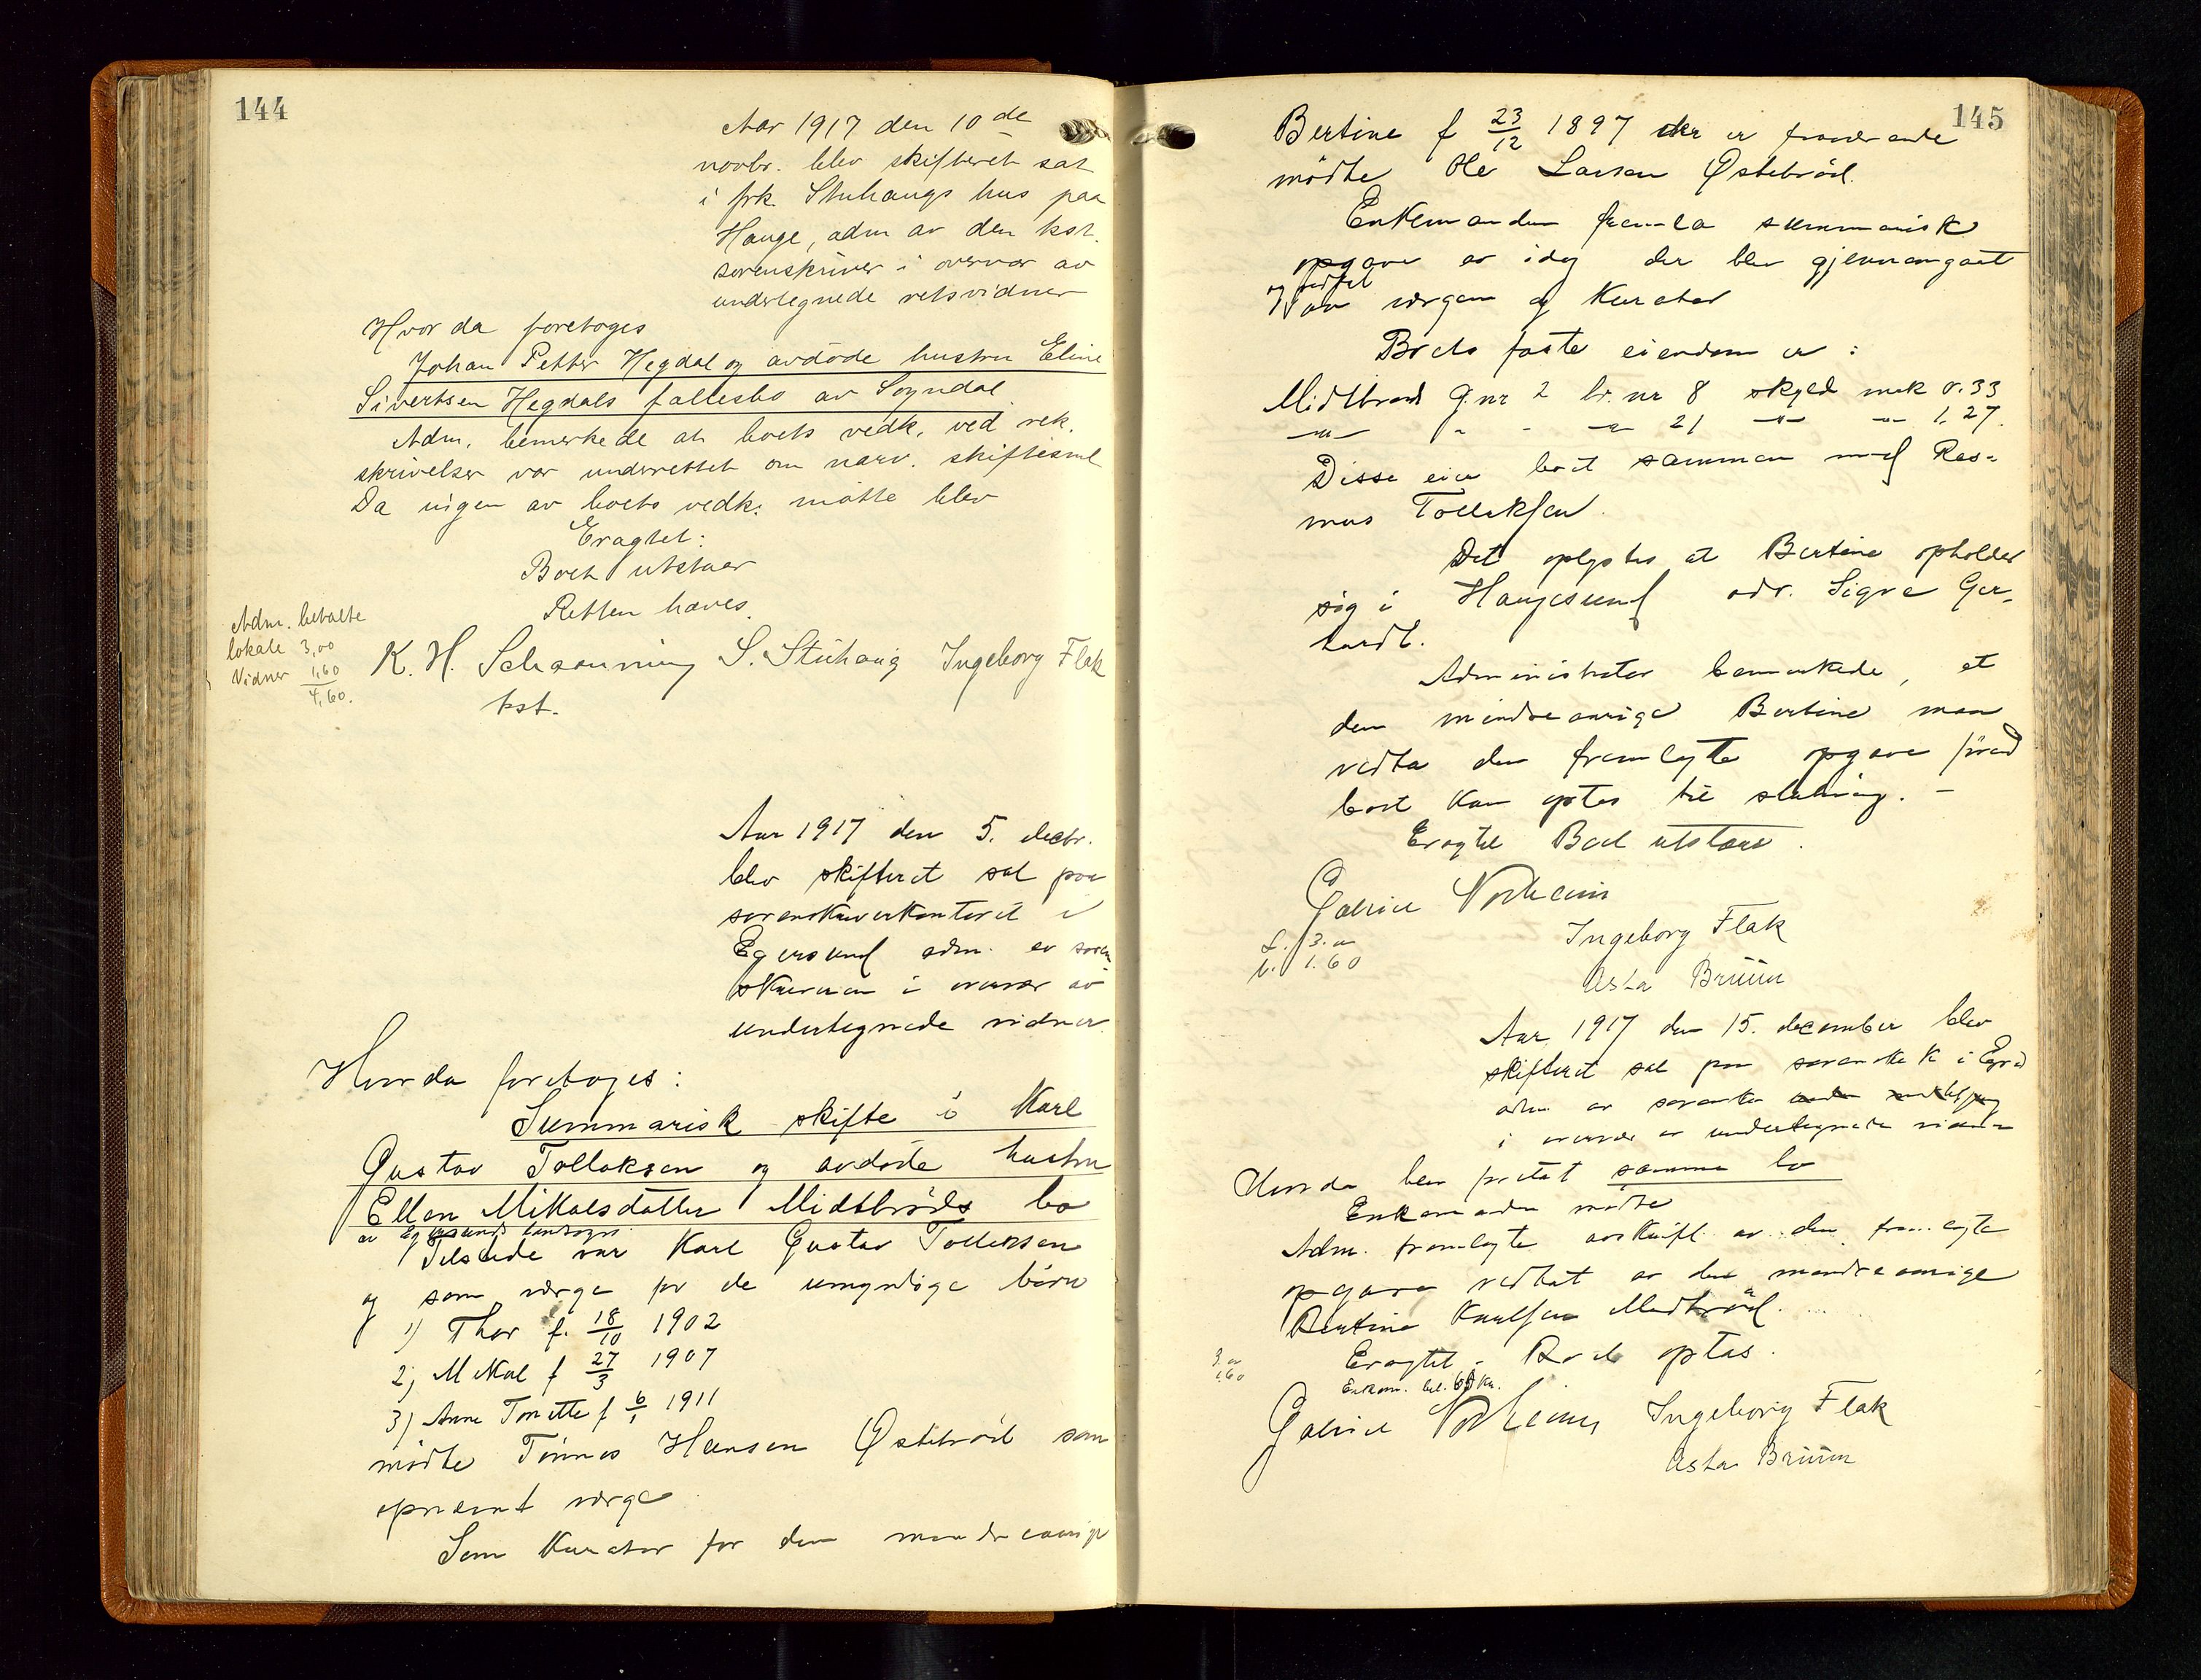 144
Aar 1917 den 10de
novbr. blev skifteret sat
i frk. Stuhaugs hus paa
Hauge, adm av den kst.
sorenskriver i overvær av
undertegnede retsvidner
Hvor da foretoges
Johan Petter Hegdal og avdøde hustru Eline
Sivertsen Hegdals fællesbo av Sogndal
Adm. bemerkede at boets vedk. ved rek.
skrivelser var underrettet om nærv. skiftesml
Da ingen av boets vedk. møtte blev
Eragtet:
Boet utstaar
Retten hæves.
Adm. betalte
lokale 3,00
Vidner 1,60
4,60.
K. H. Schaanning S. Stuhaug Ingeborg Flak
kst.
Aar 1917 den 5. decbr.
blev skifteret sat paa
sorenskriverkontoret i
Egersund adm. av soren
skriveren i overvær av
undertegnede vidner
Hvor da foretoges:
Summarisk skifte i Karl
Gustav Tollaksen og avdøde hustru
Ellen Mikalsdatter Midtbrøds bo
av Egersunds landsogn
Tilstede var Karl Gustav Tollaksen
og som værge for de umyndige børn
1) Thor f. 18/10 1902
2) Mikal f 27/3 1907
3) Anne Tonette f 6/1 1911
mødte Tønnes Hansen Østebrød som
opnævnt værge
Som Kurator for den mindreaarige
145
Bertine f 23/12 1897 der er fraværende
mødte Ole Larsen Østebrød.
Enkemanden fremla summarisk
opgave av idag der blev gjennemgaat
og vedtat
av værgen og Kurator
Boets faste eiendom er:
Midtbrød g.nr 2 br. nr 8 skyld mrk 0.33
-"- " - -"- 21 -"- -"- 1.27.
Disse eier boet sammen med Ras-
mus Tollaksen.
Det oplystes at Bertine opholder
sig i Haugesund adr. Sigva Ger-
hardt.
Administrator bemerkede, at
den mindreaarige Bertine maa
vedta den fremlagte opgave førend
boet kan optas til slutning. -
Eragtet Boet utstaar.
Gabriel Norheim
L. 3.00
V. 1.60
Ingeborg Flak
Asta Bruun
Aar 1917 den 15. december blev
skifteret sat paa sorenskr k i Egrsd
adm av sorenskr
i overvær av undertegnede vidner
Hvor da blev foretat samme bo
Enkemanden mødte
Adm. fremlagte avskrift av den fremlagte
opgave vedtat av den mindreaarige
Bertine Karlsen Midtbrød.
Eragtet - Boet optas.
3.00
1.60
Enkem. bet. Kr.
Gabriel Norheim Ingeborg Flak
Asta Bruun